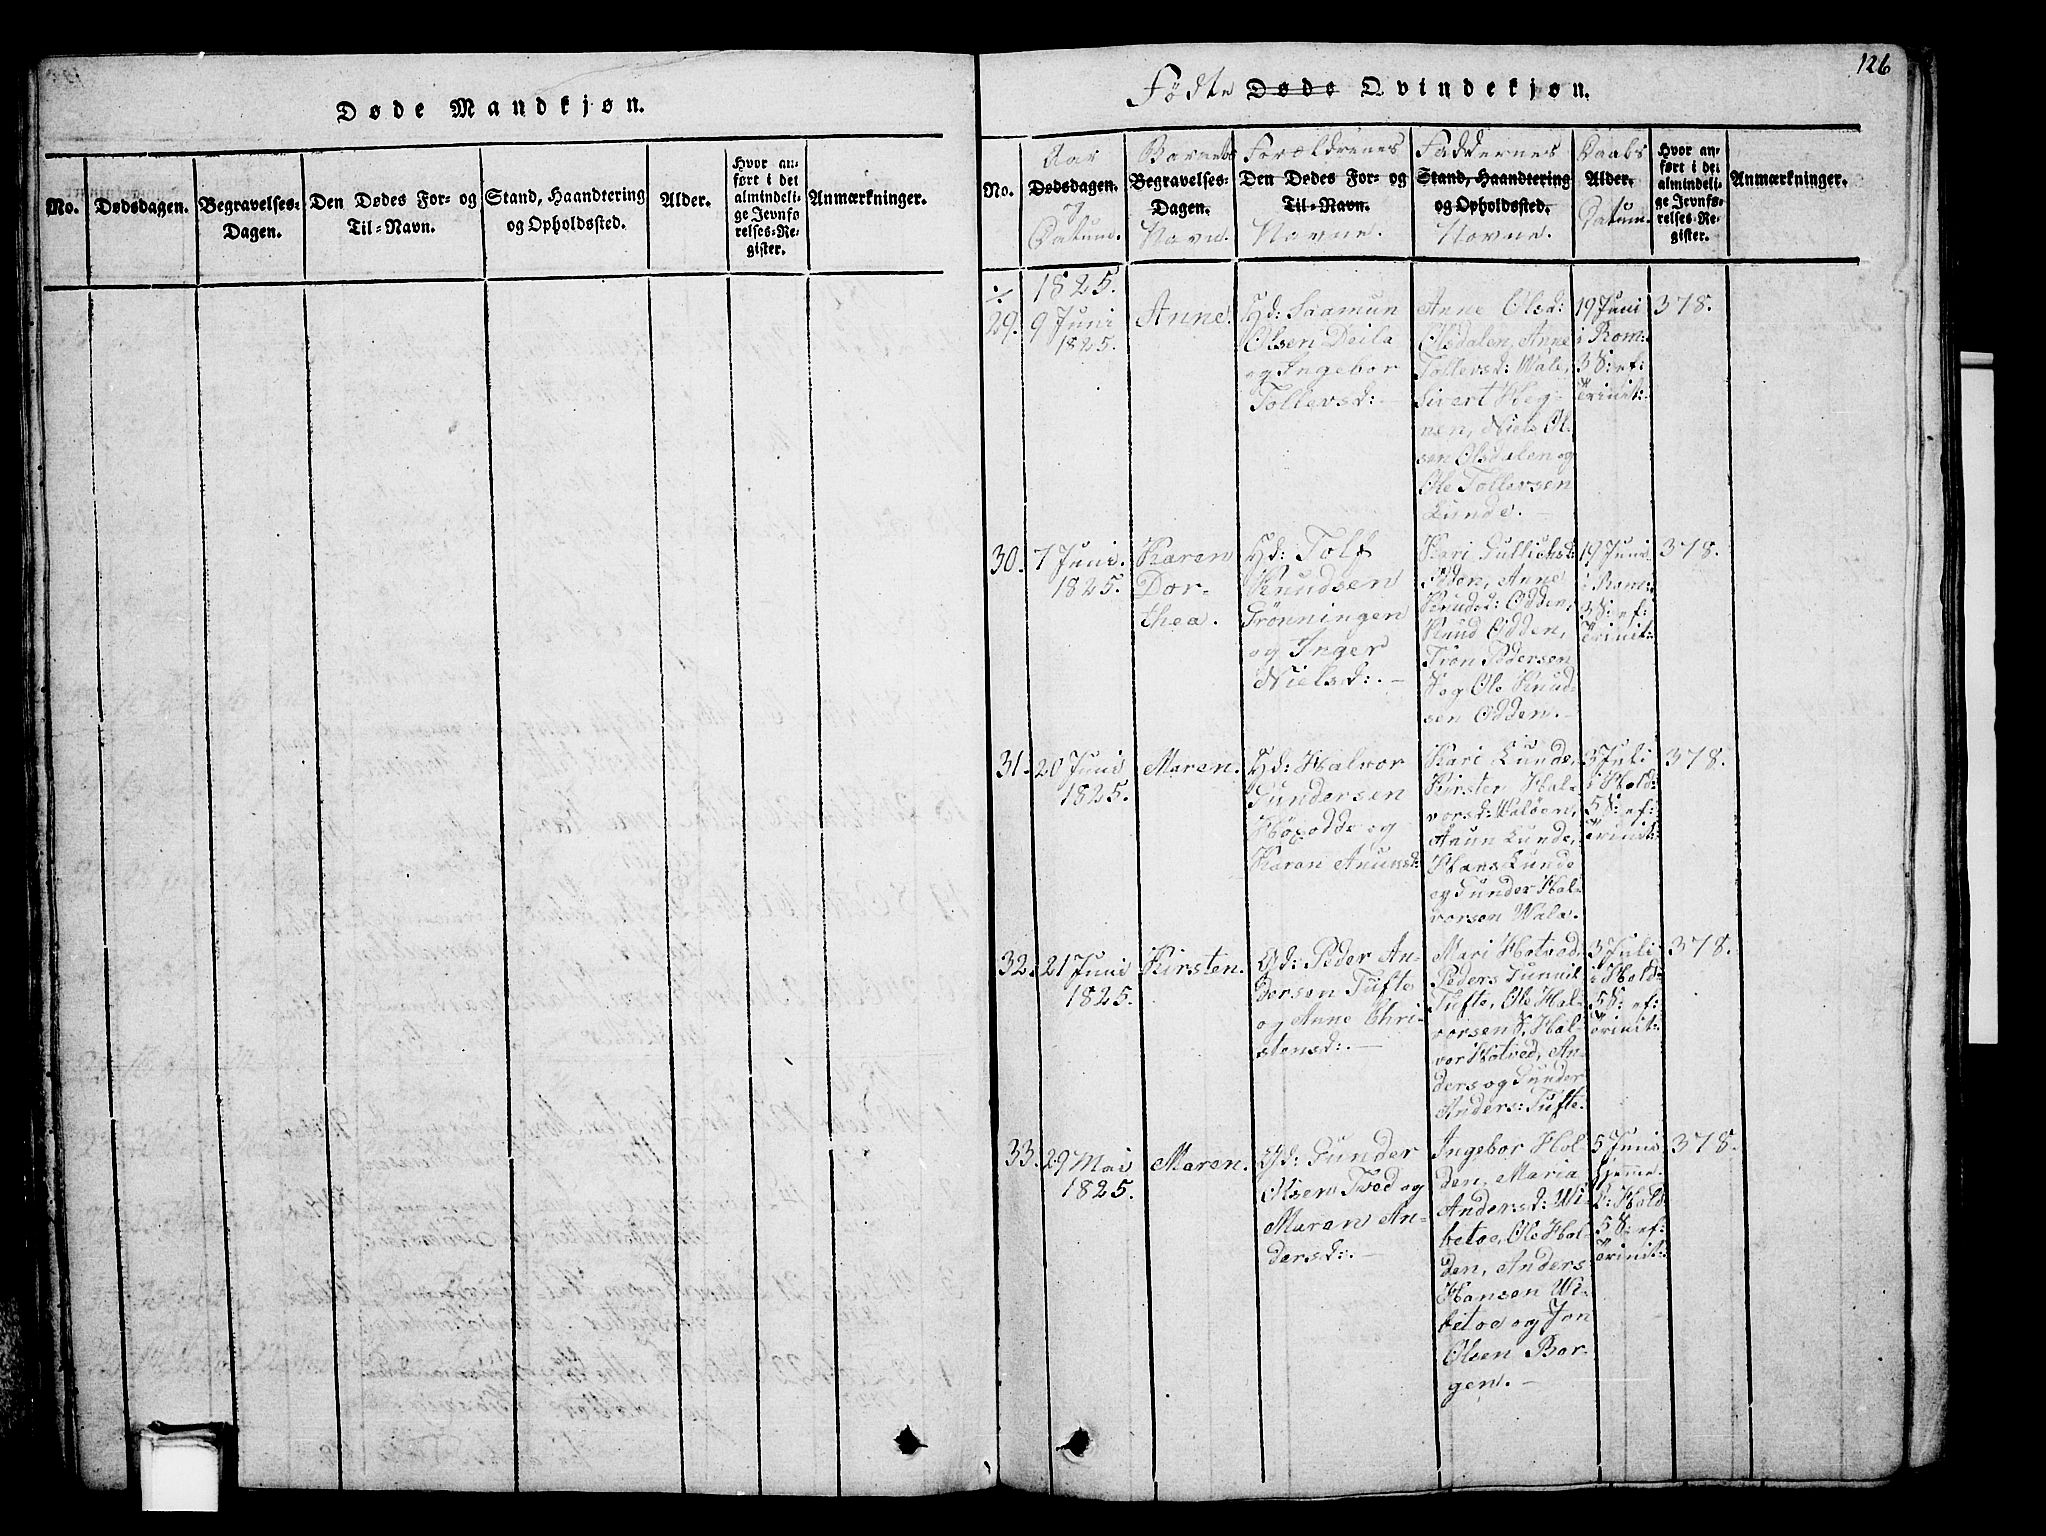 126
Døde Mandkjøn.
No.
Dødsdagen.
Begravelses-
Dagen.
Den Dødes For- og
Til-Navn.
Stand, Haandtering
og Opholdssted.
Alder.
Hvor an-
ført i det
almindeli-
ge Jevnfø
relses-Re-
gister.
Anmærkninger.
Fødte Døde Qvindekjøn.
No.
Aar
Dødsdagen.
og
Datum.
Barnets
Begravelses-
Dagen.
Navn.
Forældrenes
Den Dødes For- og
Til-Navn.
Navne.
Faddernes
Stand, Haandtering
og Opholdssted.
Navne.
Daabs
Alder.
Datum.
Hvor an-
ført i det
almindeli-
ge Jevnfø-
relses-Re-
gister.
Anmærkninger.
1825.
29.
9 Juni
1825.
Anne.
Gd: Saamun
Olsen Deila
og Ingebor
Tollevsd:
Anne Olsd:
Olsdalen, Anne
Tollevsd: Wale,
Sivert Heg-
nen, Niels Ol-
sen Olsdalen og
Ole Tollevsen
Lunde.
19 Juni
i Rom:
3 S: ef:
Trinit:
378.
30.
7 Juni.
1825.
Karen
Dor-
thea.
Hd: Tolf
Knudsen
Grønningen
og Inger
Nielsd:
Kari Gullichsd:
Odden, Anne
Knudsd: Odden,
Knud Odden,
Tron Pedersen
og Ole Knud-
sen Odden.
19 Juni
i Rom:
3 S: ef:
Trinit:
378.
31.
20 Juni
1825.
Maren.
Hd: Halvor
Gundersen
Høxodde og
Karen Anunsd:
Kari Lunde,
Kirsten Hal-
vorsd: Haløen,
Anun Lunde,
Hans Lunde
og Gunder Hal-
vorsen Wala.
3 Juli
i Hold:
5 S: ef:
Trinit:
378.
32.
21 Juni
1825.
Kirsten.
Gd: Peder An-
dersen Tufte
og Anne Chri-
stensd:
Mari Hotved,
Peders Gunnil
Tufte, Ole Hal-
vorsen S, Hal-
vor Hotved, An-
ders og Gunder
Anders: Tufte.
3 Juli
i Hold:
5 S: ef:
Trinit:
378.
33.
29 Mai
1825.
Maren.
Gd: Gunder
Olsen Tved og
Maren An-
dersd:
Ingebor Hol-
den, Maria
Andersd: Wi-
betoe, Ole Hol-
den, Anders
Hansen Wi-
betoe og Jon
Olsen Bor-
gen.
5 Juni
hjemme.
D: Hold
5 S: ef:
Trinit:
378.